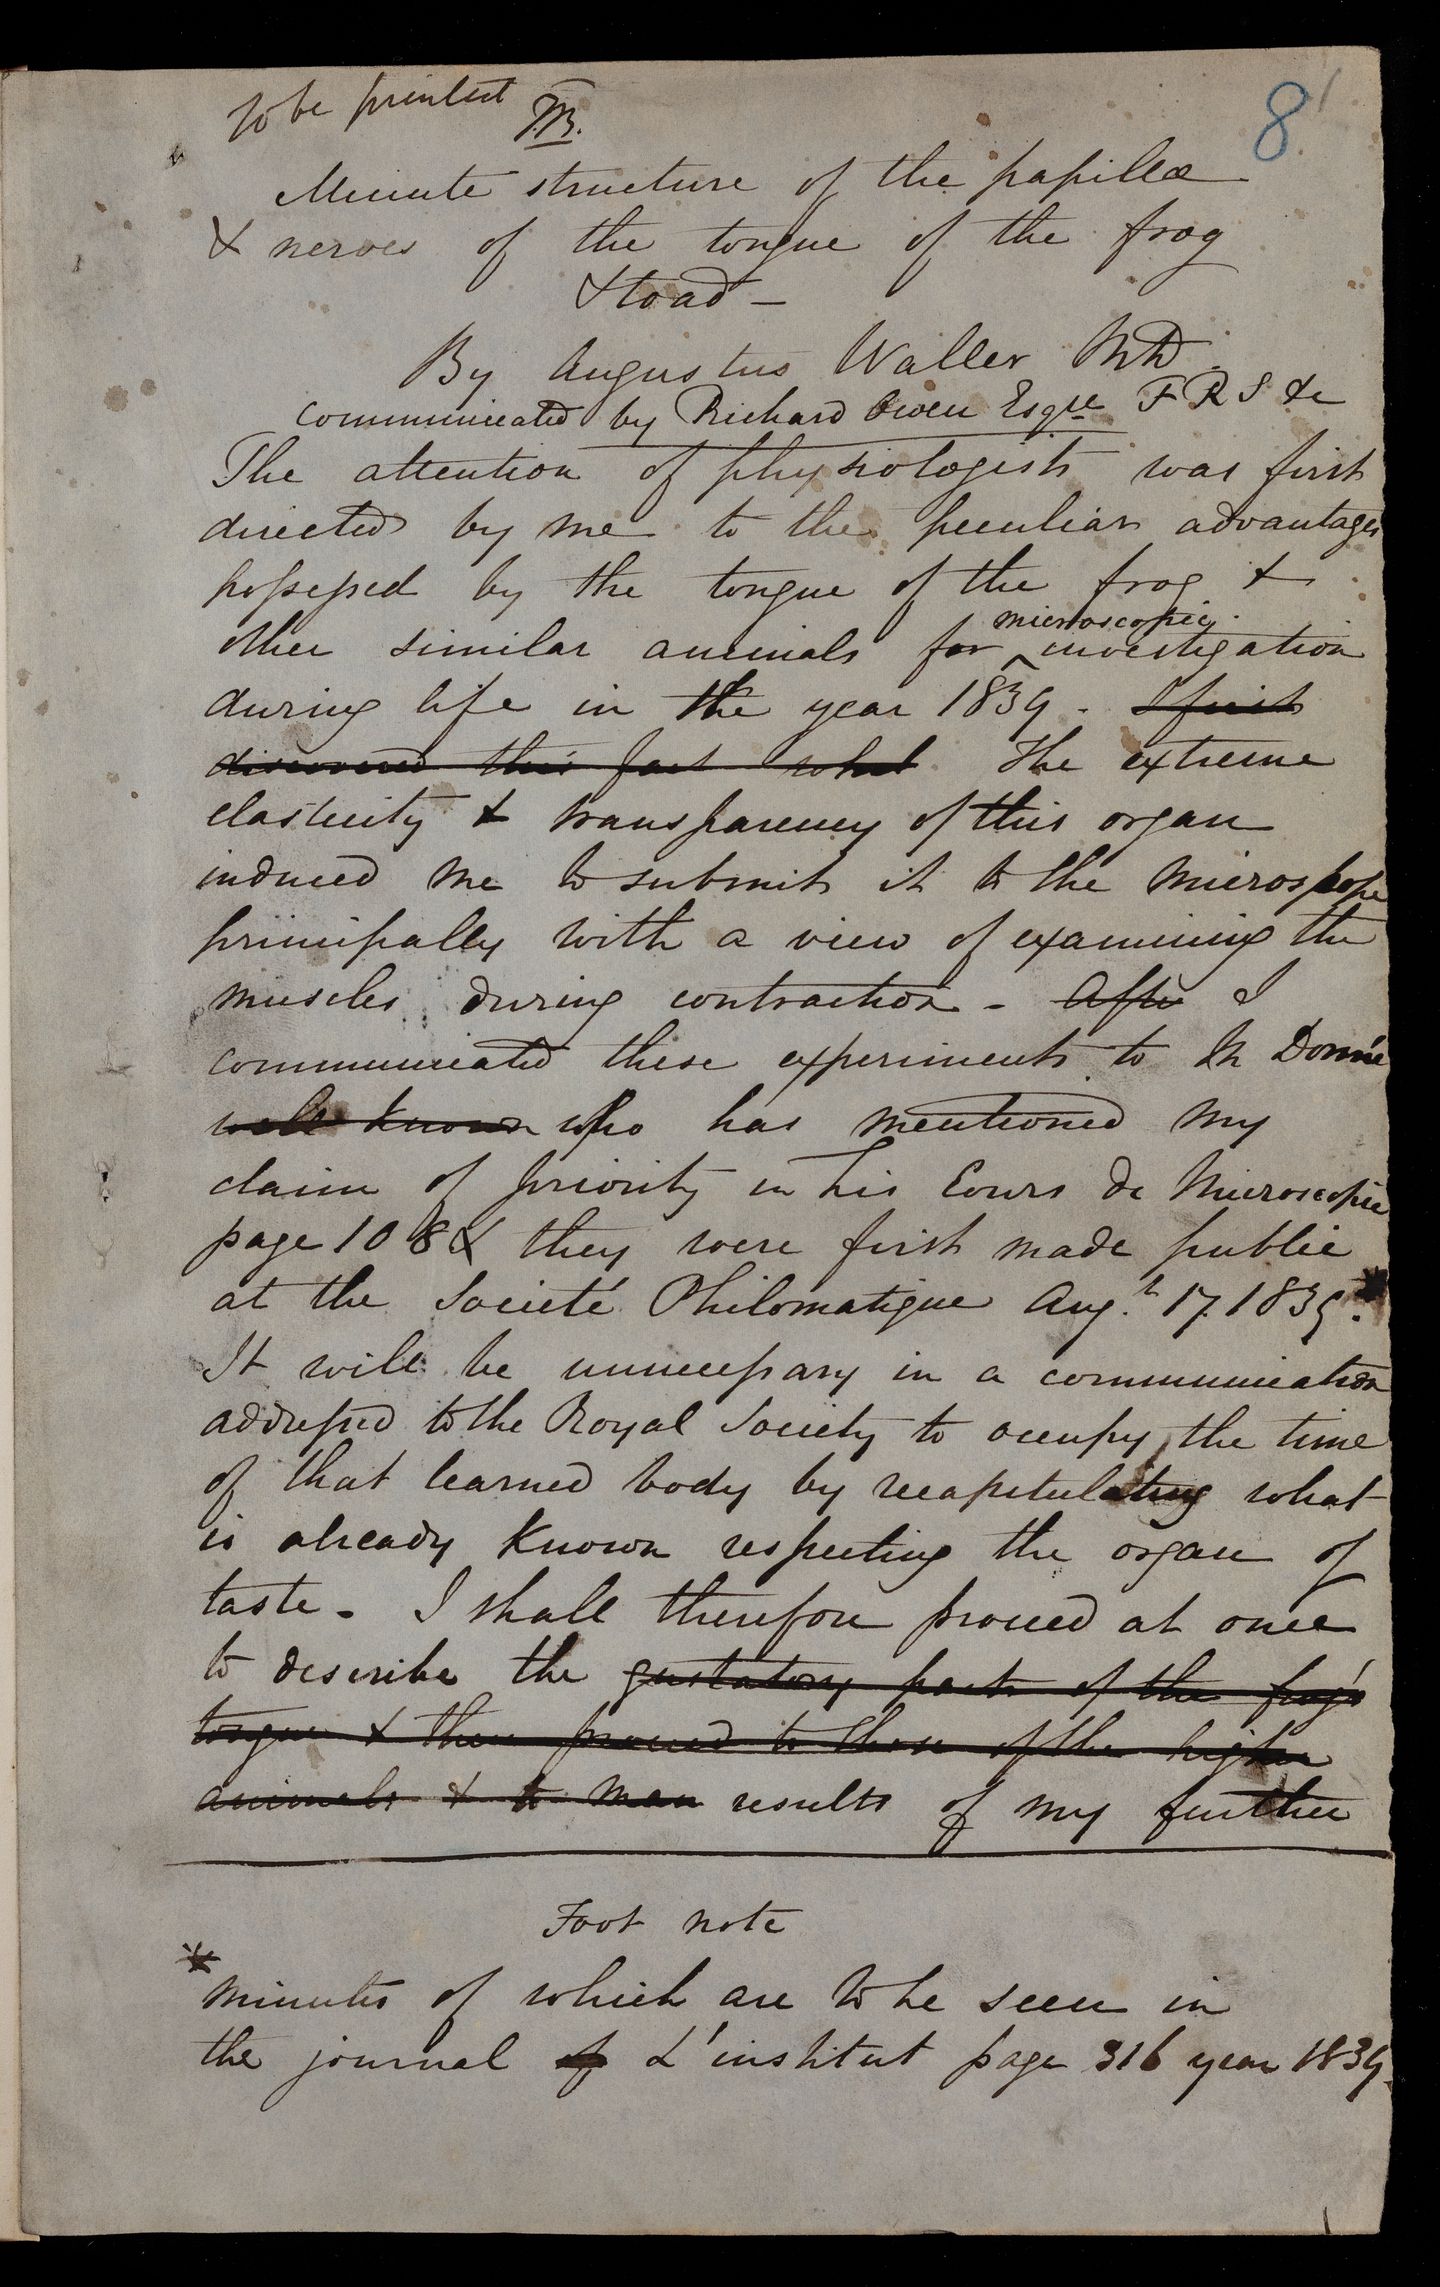 to be printed
8
Minute structure of the papillæ
& nerves of the tongue of the frog
& toad -
By Augustus Waller MD.
communicated by Richard Owen Esqre F R S &c
The attention of physiologists was first
directed by me to the peculiar advantages
possessed by the tongue of the frog &
microscopic
other similar animals for ^ investigation
during life in the year 1839 - I first
discovered this fact what The extreme
elasticity & transparency of this organ
induced me to submit it to the microscope
principally with a view of examining the
muscles during contraction - After I
communicated these experiments to M Donné
well known who has mentioned my
claim of priority in his Cours de Microscopie
page 108 & they were first made public
at the Societé Philomatique Aug.t 17. 1839. *
It will be unnecessary in a communication
addressed to the Royal Society to occupy the time
of that learned body by recapitulating what
is already known respecting the organ of
taste - I shall therefore proceed at once
to describe the gustatory parts of the frog's
tongue & then proceed to those of the higher
animals & to man results of my further
Foot note
* minutes of which are to be seen in
the journal of L'institut page 316 year 1839.